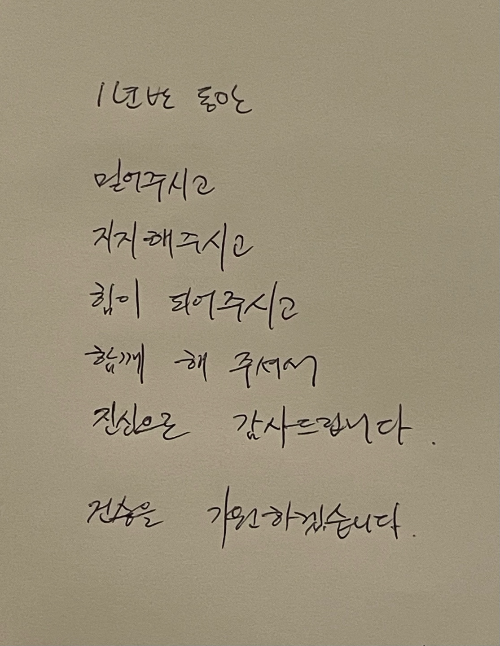 1년반 동안
믿어주시고
지지해주시고
힘이 되어주시고
함께 해 주셔서
진심으로 감사드립니다.
건승을 기원하겠습니다.